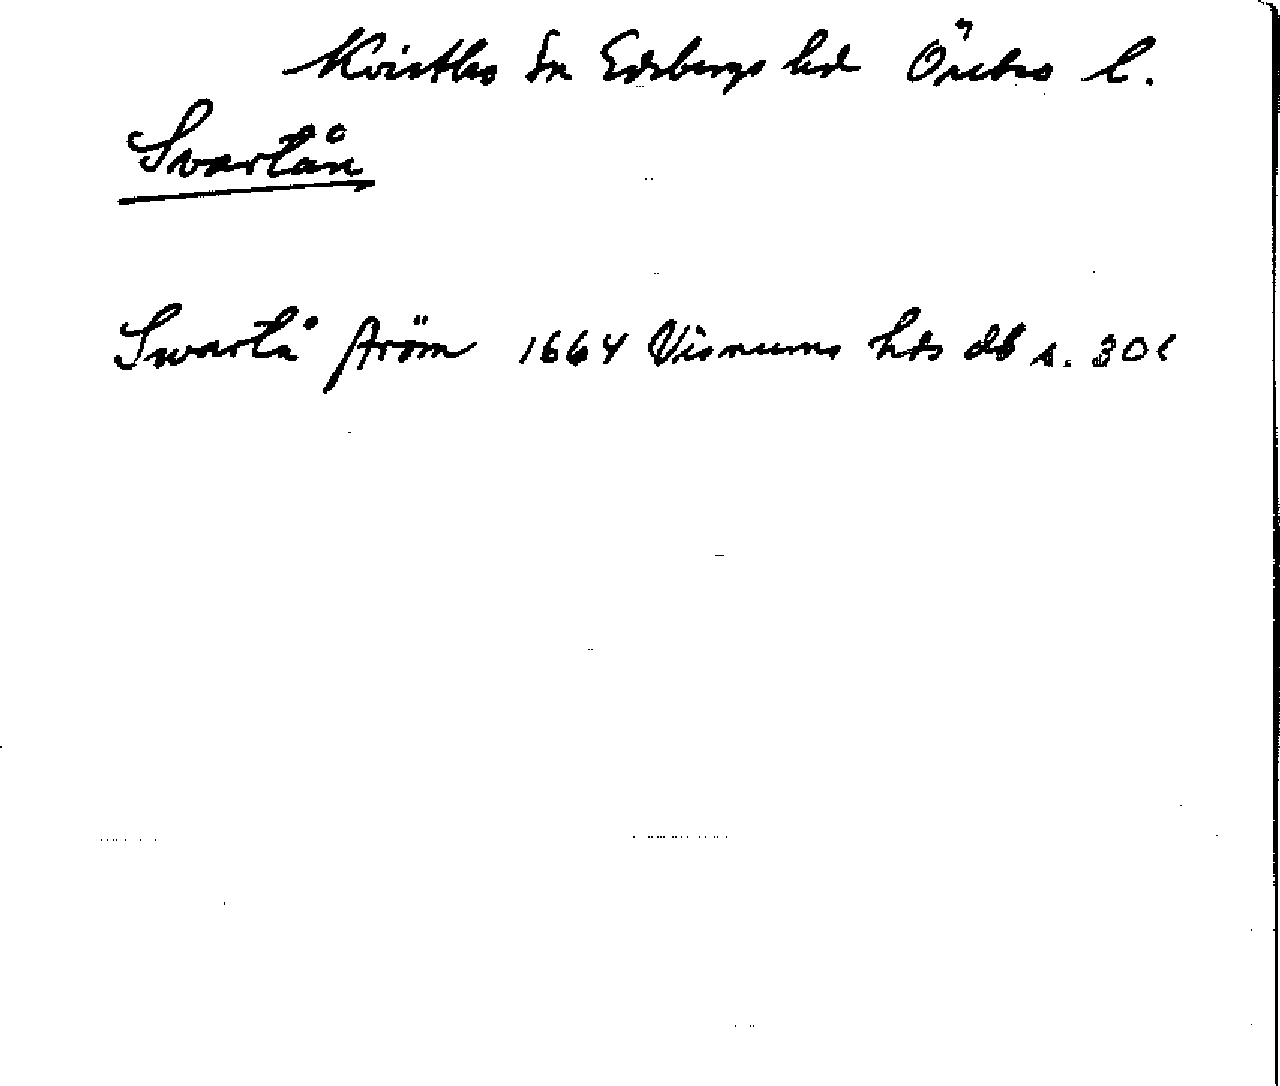 Kvistbro sn Edsbergs hd Örebro l.
Svartån
Swartå ström 1664 Visnums hds db s. 301